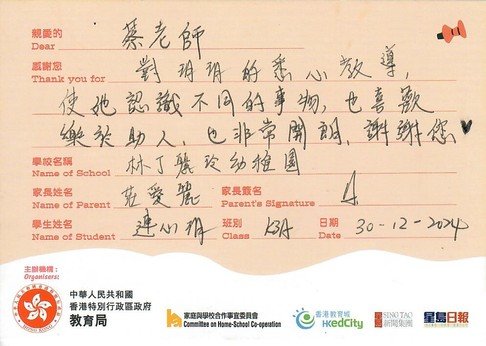 親愛的 蔡老師
Dear
感謝您 對玥玥的悉心教導,
Thank you for
使她認識不同的事物,也喜歡
樂於助人,也非常開朗,謝謝您♥
學校名稱 林丁麗玲幼稚園
Name of School
家長姓名 莊愛麗 家長簽名
Name of Parent Parent's Signature
學生姓名 連心玥 班別 K3A 日期 30-12-2024
Name of Student Class Date
主辦機構:
Organisers:
中華人民共和國
香港特別行政區政府
教育局
家庭與學校合作事宜委員會
Committee on Home-School Co-operation
香港教育城
HKedCity
SING TAO
新聞集團
星島日報